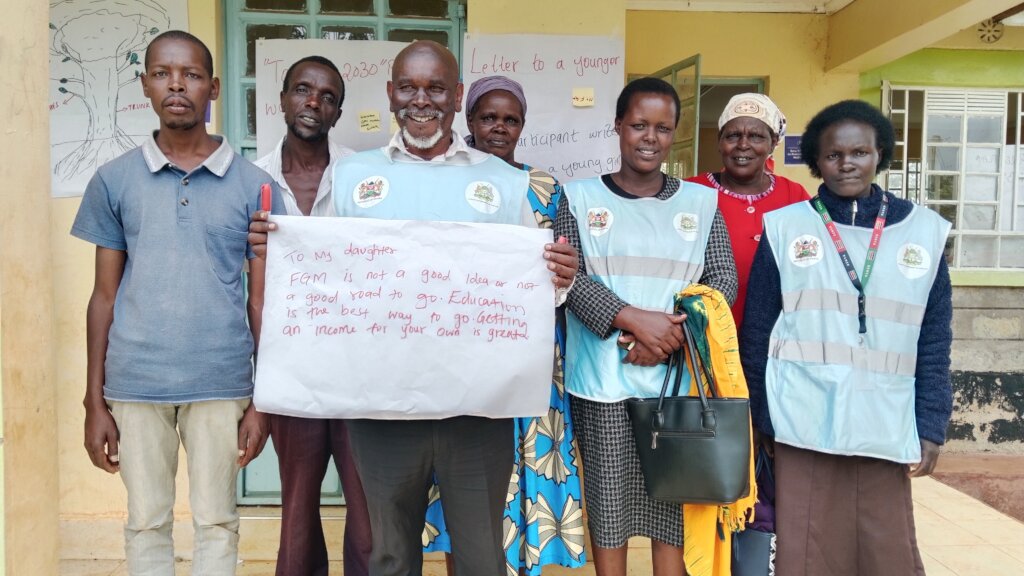 TRUNK
2030"
Letter to a younger
Participant write
a young gir
To My daughter
FGM is not a good Idea or not
a good road to go. Education
is the best way to go. Getting
an income for your own is greater